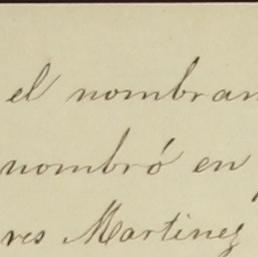 el nombran
nombró en
res Martinez